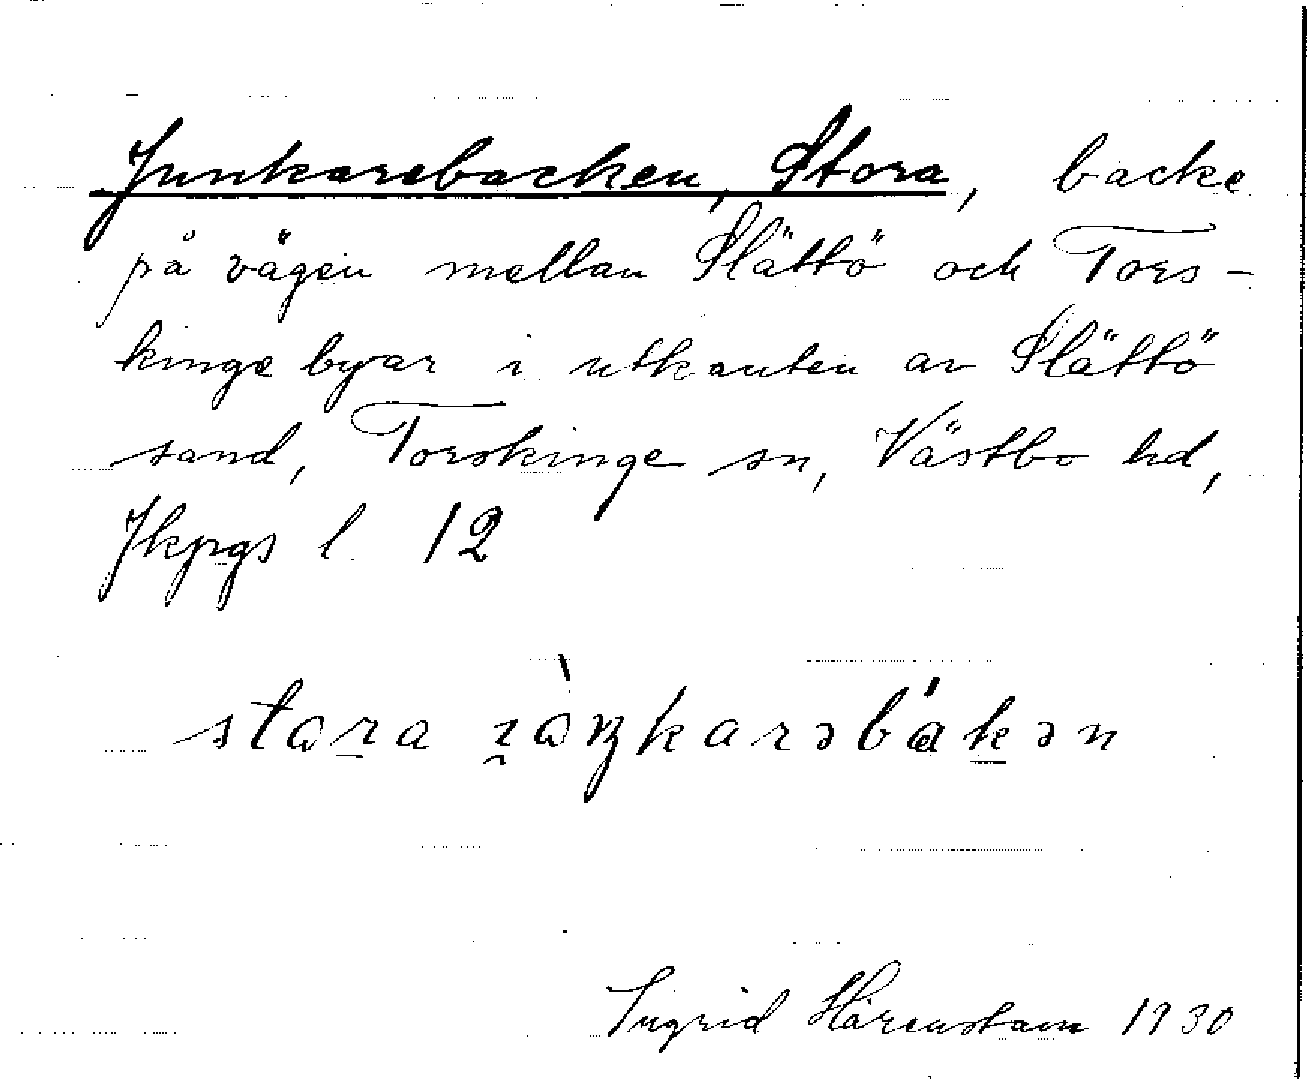 Junkarebacken, Stora, backe
på vägen mellan Slättö och Tors-
kinge byar i utkanten av Slättö
sand, Torskinge sn, Västbo hd,
Jkpgs l. 12
Ingrid Härenstam 1930